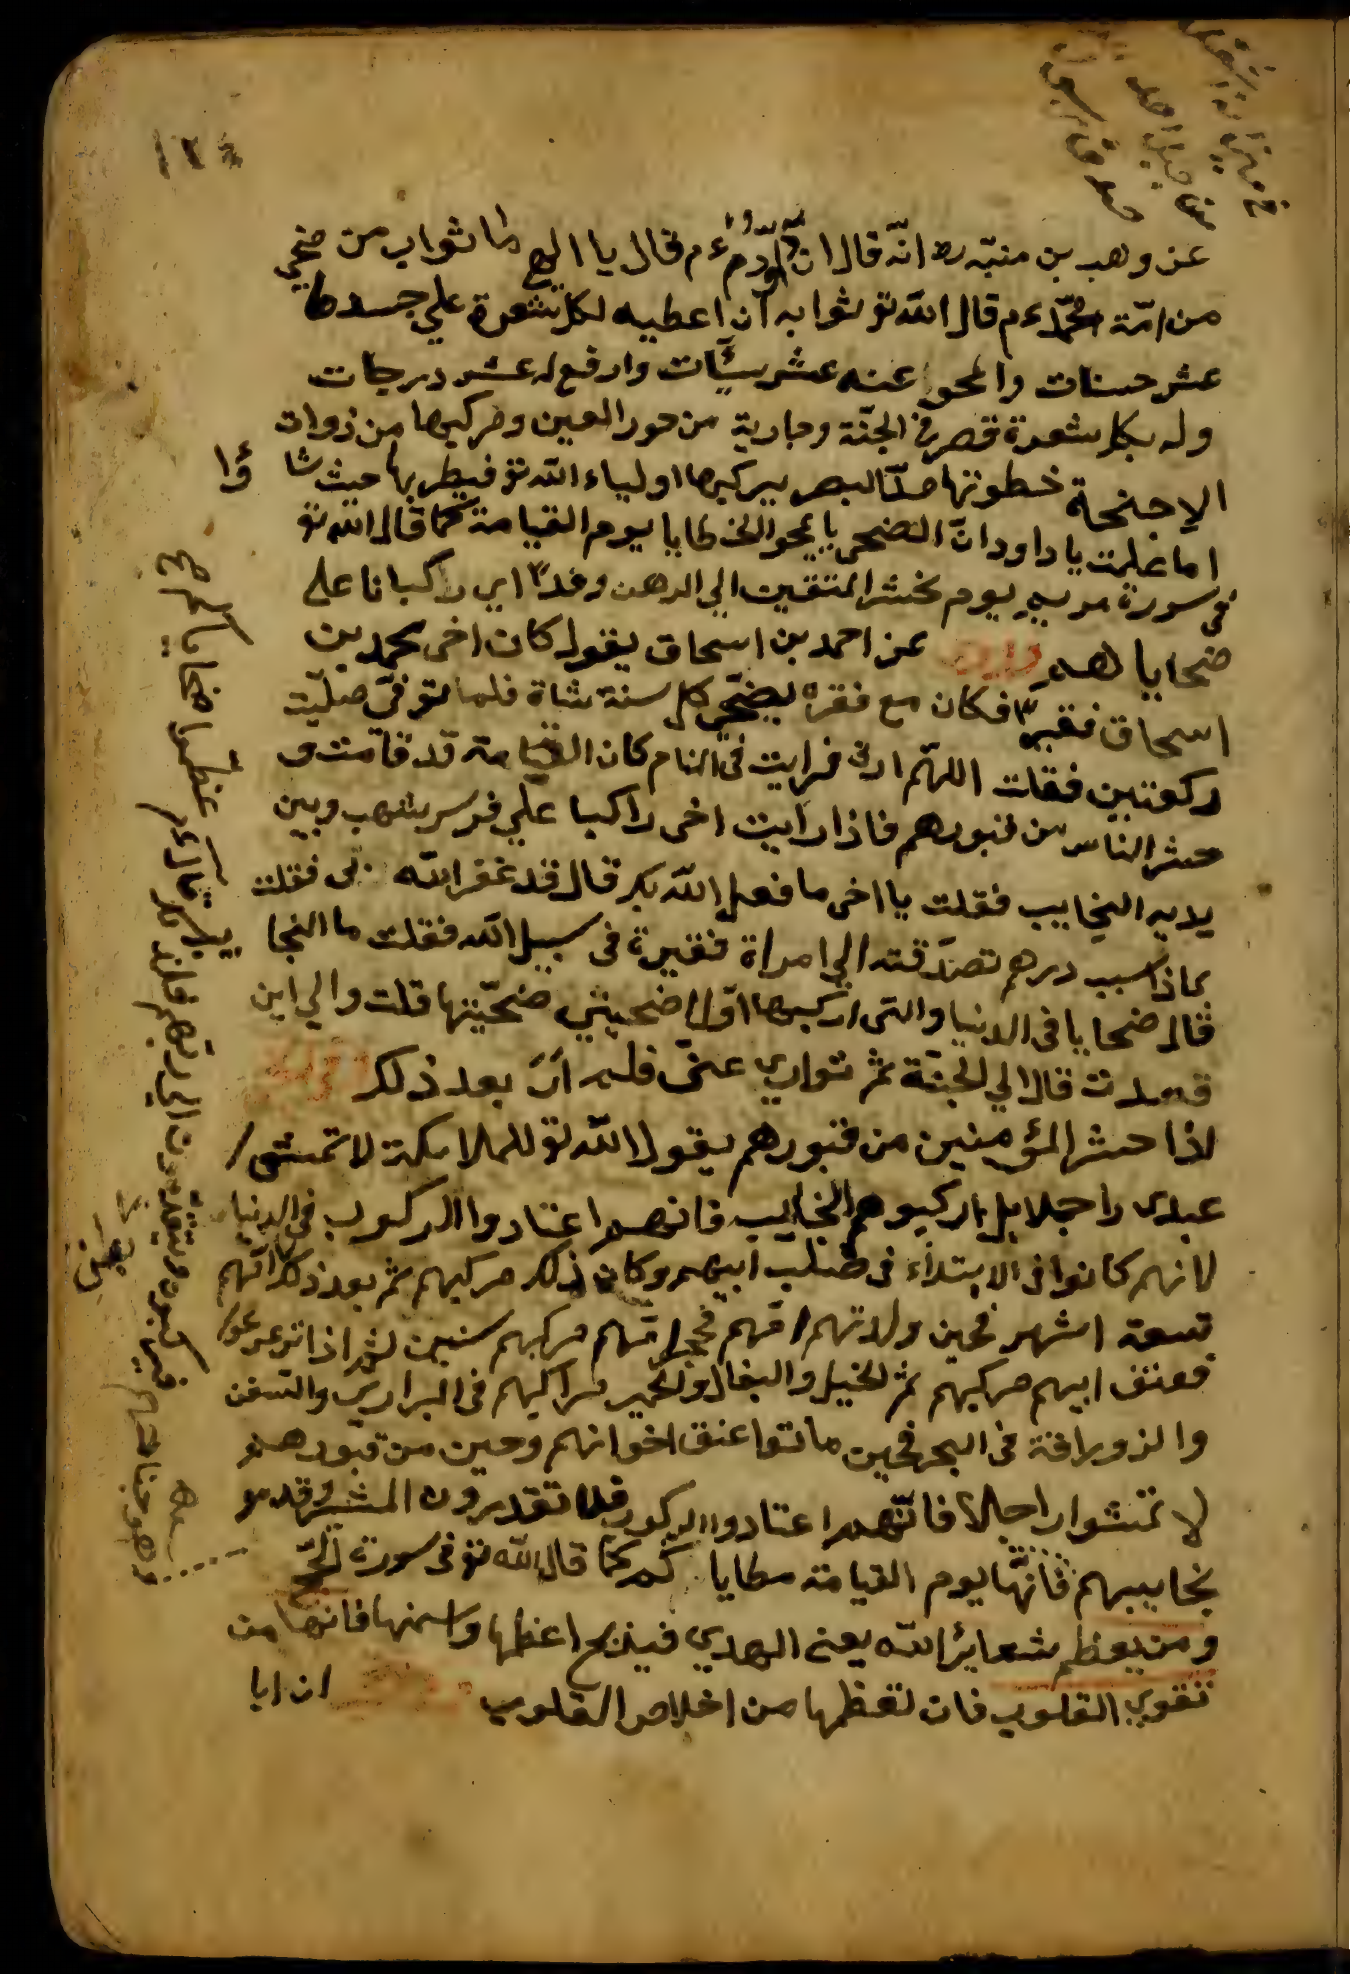 ١٢٤
عن وهب بن منبّه رض انّه قال ان داود ءم قال يا الهي ما ثواب من ضحي
من امّة محمّد ءم قال الله تو ثوابه ان اعطيه لكل شعرة علي جسدها
عشر حسنات وامحوا عنه عشر سيّأت وارفع له عشر درجات
وله بكل شعرة قصر في الجنّة وجارية من حور العين ومركبها من ذوات
الاجنحة خطوتها مدّ البصر يركبها اولياء الله تو فيطير بها حيث شاؤا
اما علمت يا داود انّ الضحايا يمحو الخطايا يوم القيامة كما قال الله تو
في سورة مريم يوم نحشر المتقين الي الرحمن وفداً اي ركبانا علي
ضحاياهم عن احمد بن اسحاق يقول كان اخي محمد بن
اسحاق فقيراً فكان مع فقره يضحّي كل سنة شاة فلما توفّي صلّيت
ركعتين فقلت اللهّم ارني فرايت في المنام كان القيامة قد قامت و
حشر الناس من قبورهم فاذا رايت اخي راكبا علي فرس شهب وبين
يديه النجايب فقلت يا اخي ما فعل الله بك قال قد غفر الله لي فقلت
بماذا بسبب درهم تصدّقته الي امراة فقيرة في سبيل الله فقلت ما النجا
قال ضحايا في الدنيا والتي اركبها اوّل اضحيتي ضحّيتها قلت والي اين
قصدت قال الي الجنّة ثم تواري عنّي فلم ار بعد ذلك
اذا حشر المؤمنين من قبورهم يقول الله تو للملائكة لا تمشي
عبدي راجلا بل اركبوهم النجايب فانهم اعتادوا الركوب في الدنيا
لانهم كانوا في الابتداء في صلب ابيهم وكان ذلك مركبهم ثم بعد ذلك امّهم
تسعة اشهر فحين ولدتهم امّهم فحجر امّهم مركبهم سنين ثم اذا ترعرعوا
فعنق ابيهم مركبهم ثم الخيل والبغال والحمير مراكبهم في البراري والسفن
والزوراقة في البحر فحين ماتوا عنق اخوانهم وحين من قبورهم
لا تمشوا راجلا فانّهم اعتادوا الركوب فلا تقدرون المشي وقدموا
نجايبهم فانّها يوم القيامة مطاياكم كما قال الله تو في سورة الحج
ومن يعظم شعائر الله يعني الهدي فيذبح اعظمها واسمنها فانها من
تقوي القلوب فان تعظمها من اخلاص القلوب ان ابا